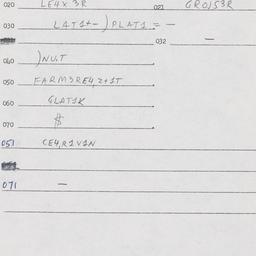 020 LE4X 3R 021 GROJ53R
030 LAT1+-)PLAT1=-
032 -
040 )NUT
050 FARM3RE4,2+1T
060 GLAT1K
070 $
051 CE4,R1V1N
071 -